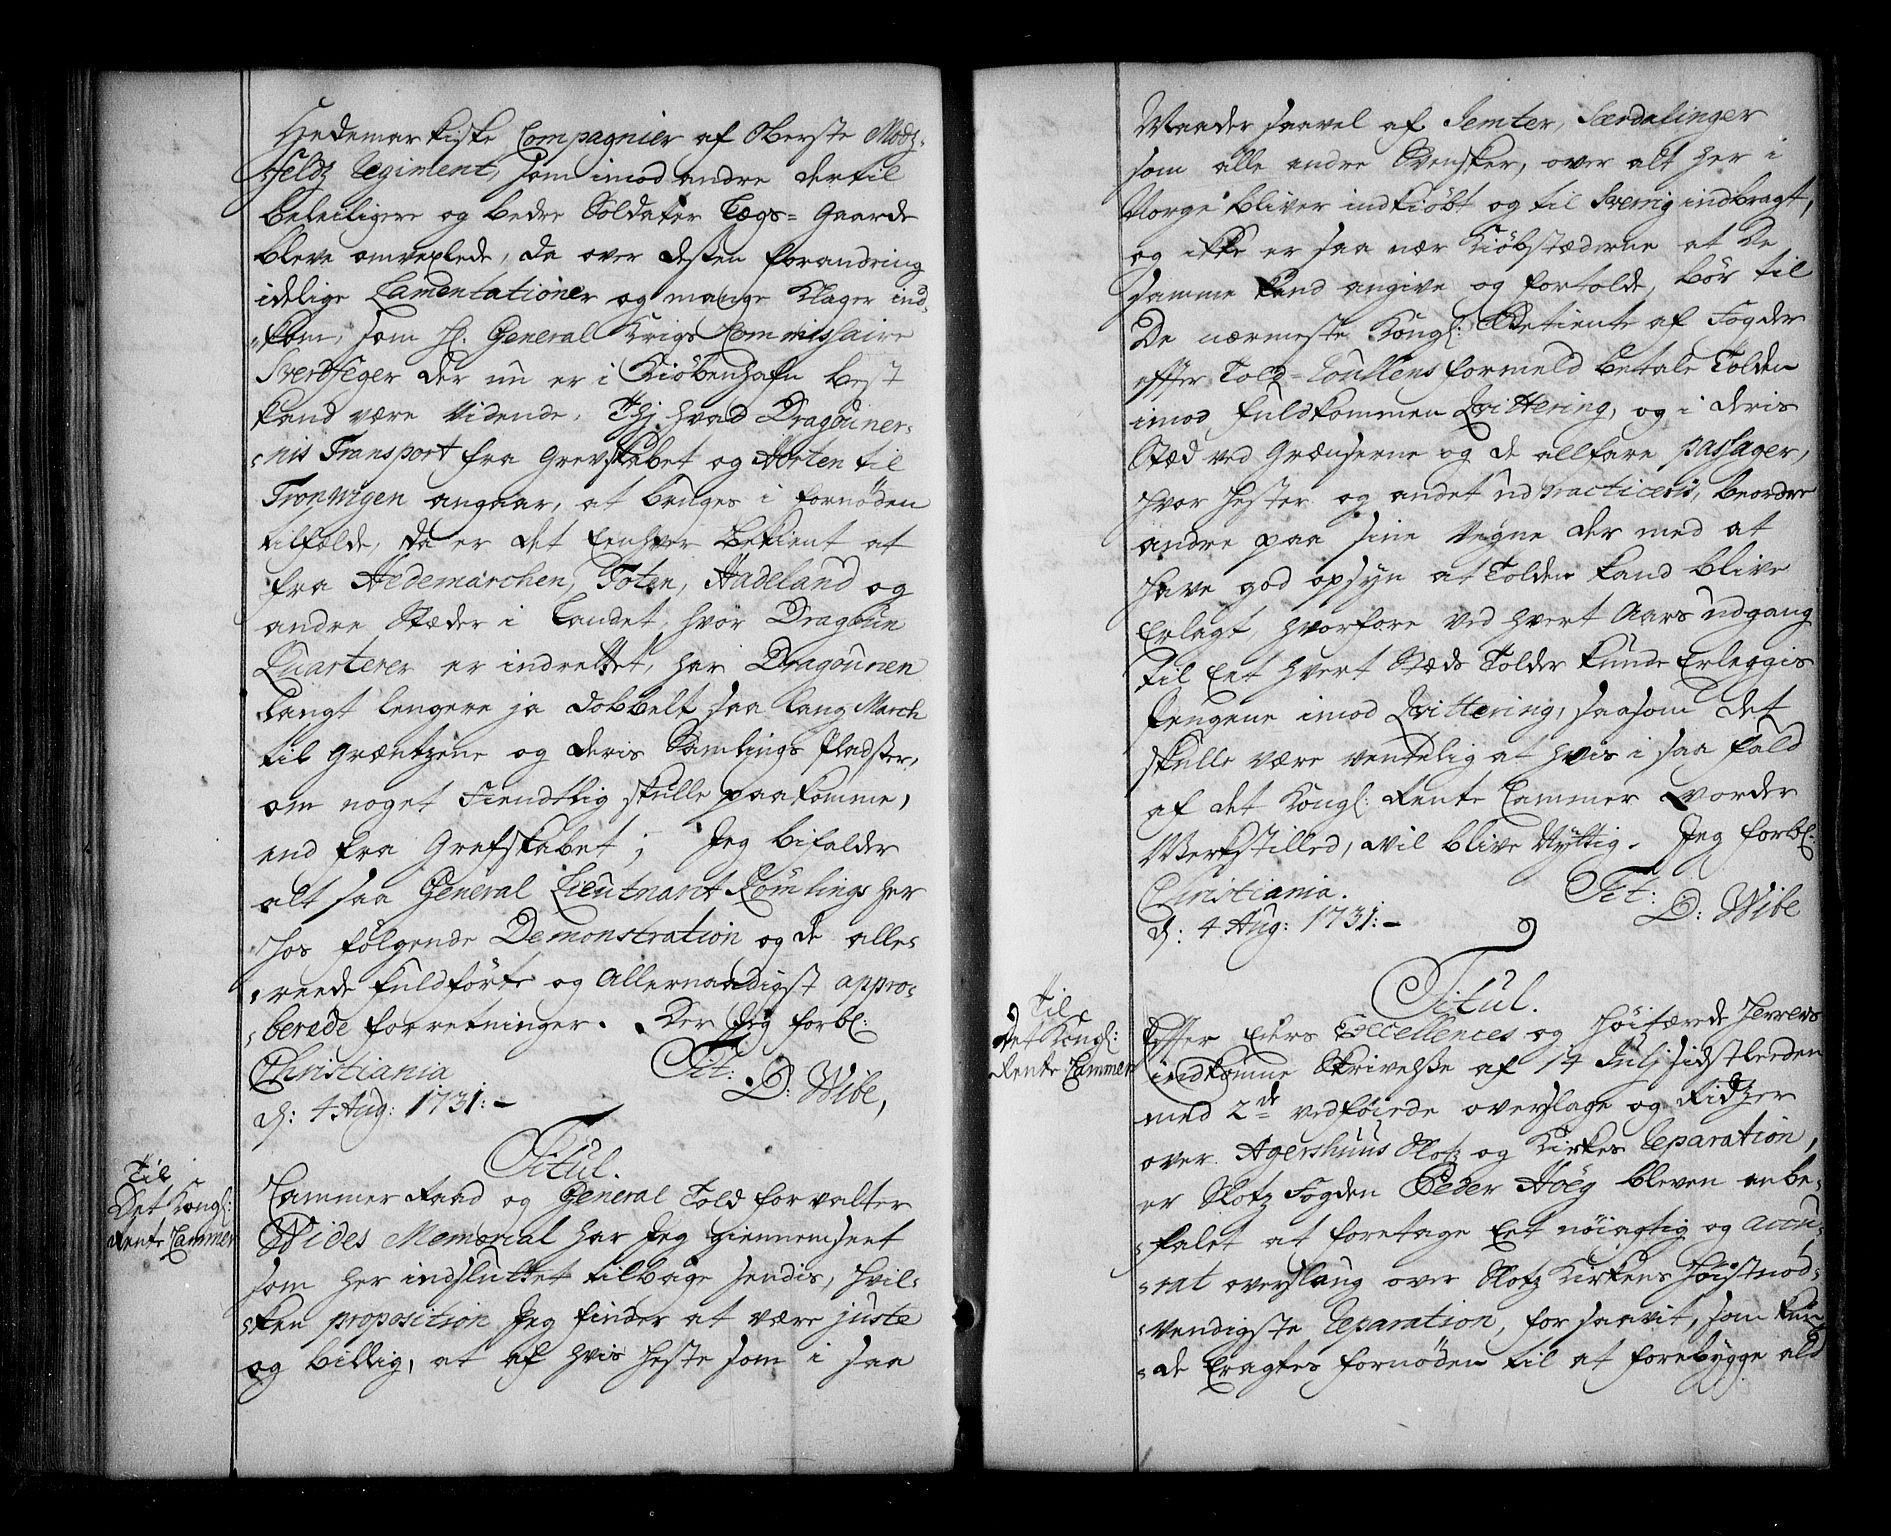 Hedemarkiske Compagnier af Oberste Modz-
feldz Regiment, som imod andre dertil
beleiligere og bedre Soldater Lægs= Gaarde
bleve omvexlede, da over desten forandring
idelige Lamentationer og mange Klager ind-
kom, som H. General Krigs Commissaire
Sverdfeger der nu er i Kiöbenhafn best
kand være vidende, Thj hvad Dragouner-
nis Transport fra Grevskabet og Horten til
Tronvigen angaar, at bruges i fornöden
tilfælde, da er det Eenhver bekient at
fra Hedemarchen, Toten, Hadeland og
andre Stæder i Landet, hvor Dragoun
Quarterer er indrettet, har Dragounen
langt lengere ja dobbelt saa lang March
til Græntzene og deris Samlings Pladser,
om noget Fiendtlig skulle paakomme,
end fra Grefskabet; Jeg bifalder
alt saa General Lieutnant Römlings her
hos følgende Demonstration og de alle-
reede fuldförte og Allernaadigst appro-
berede forretninger. Der Jeg forbl:
Christiania Tit:
d: 4 Aug: 1731:- D: Wibe,
Titul.
Til
Det Kongl:
Rente Cammer
Cammer Raad og General Told forvalter
Wides Memorial har Jeg giennemseet
som her indsluttet tilbage sendis, hvil-
ken proposition Jeg finder at være juste
og billig, at af hvis heste som i saa
Maader saavel af Jemter, Særdalinger
som alle andre Svensker, over alt her i
Norge bliver indkiöbt og til Sverrig indbragt,
og ikke er saa nær Kiöbstæderne at de
samme kand angive og fortolde, bör til
De nærmeste Kongl: Betiente af Fogder
efter Told-Roullens formeld betale Tolden
imod fuldkommen Qvittering, og i deris
Stæd ved Grændserne og de alfare passager,
hvor hester og andet ud practiceris, beordre
andre paa sine vegne der med at
have god opsyn at Tolden kand blive
Erlagt, hvorfore ved hvert Aars udgang
til Eet hvert Stæds Tolder kunde Erleggis
pengene imod Qvittering, saasom det
skulle være ventelig at hvis i saa fald
af det Kongl: Rente Cammer vorder
Werkstilled, vil blive Nyttig. Jeg forbl:
Christiania. Tit:
d: 4 Aug: 1731:- D: Wibe
Titul.
Til
Det Kongl:
Rente Cammer
Efter Eders Excellences og Höitærede Herrers
indkomne Skrivelse af 14 Julj sidstleeden
med 2de vedföiede overslage og Ridzer
over Agershuus Slotz og Kirkes Reparation,
er Slotz Fogden Peder Höeg bleven anbe-
falet at foretage Eet nöiagtig og accu-
rat overslaug over Slotz Kirkens höistnöd-
vendigste Reparation, for saavit, som kun-
de Eragtes fornöden til at forebygge ald